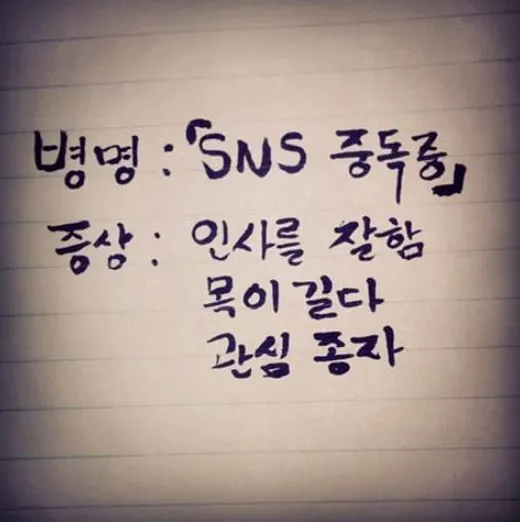 병명 : 「SNS 중독중」
증상 : 인사를 잘함
목이 길다
관심 종자